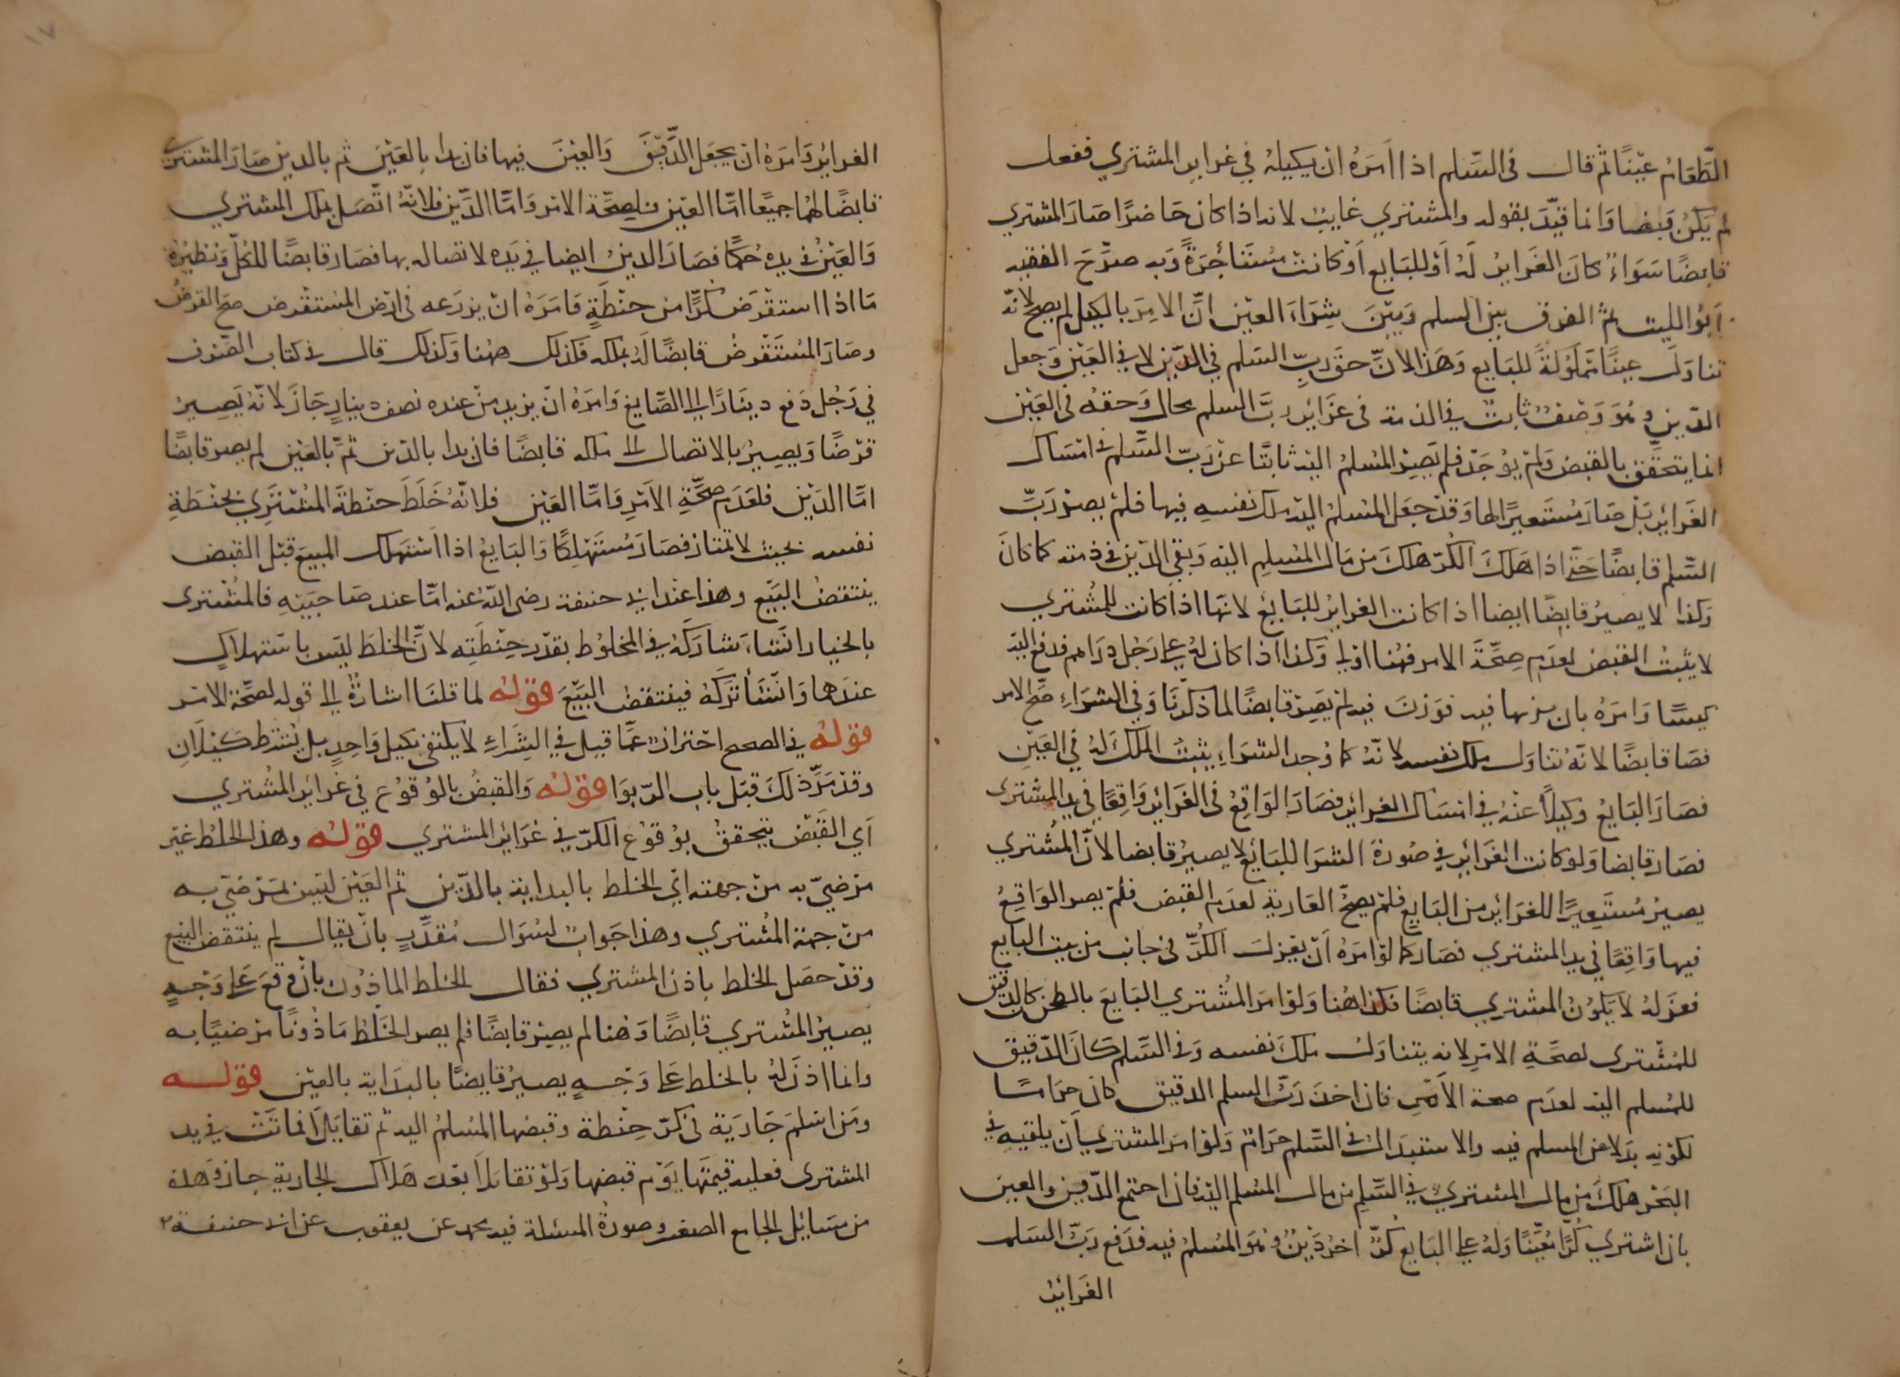 الطعام عينا ثم قال في السلم اذا امره ان يكيله في غراير المشتري ففعل
لم يكن قبضا وانما قيد بقوله والمشتري غايب لانه اذا كان حاضرا صار المشتري
قابضا سواء كان الغراير له او للبايع او كانت مستأجرة وبه صرح الفقيه
ابو الليث ثم الفرق بين السلم وبين شراء العين ان الامر بالكيل لم يصح لانه
تناول عينا مملولة للبايع وهذا لان حق رب السلم في الدين لا في العين وجعل
الدين وهو وصف ثابت في الذمة في غراير رب السلم محال وحقه في العين
انما يتحقق بالقبض ولم يوجد فلم يصر المسلم اليه ثابتا عن رب السلم في امساك
الغراير بل صار مستعيرا لها وقد جعل المسلم اليه ملك نفسه فيها فلم يصر رب
السلم قابضا حتى اذا هلك الكر هلك من مال المسلم اليه وبقي الدين في ذمته كما كان
وكذا لا يصير قابضا ايضا اذا كانت الغراير للبايع لانها اذا كانت للمشتري
لا يثبت القبض لعدم صحة الامر فهنا اولى وكذا اذا كان له على رجل دراهم فدفع اليه
كيسا وامره بان يزنها فيه فوزن فيه لم يصر قابضا لما ذكرنا وفي الشراء صح الامر
فصا قابضا لانه تناول ملك نفسه لانه كما وجد الشراء يثبت الملك له في العين
فصار البايع وكيلا عنه في امساك الغراير فصار الواقع في الغراير واقعا في يد المشتري
فصار قابضا ولو كانت الغراير في صورة الشرا للبايع لا يصير قابضا لان المشتري
يصير مستعيرا للغراير من البايع فلم يصح العارية لعدم القبض فلم يصر الواقع
فيها واقعا في يد المشتري فصار كما لو امره ان يعزل الكر في جانب من بيت البايع
فعزله لا يكون المشتري قابضا فكذا هنا ولو امر المشتري البايع بالطحن كا الدقيق
للمشتري لصحة الامر لانه يتناول ملك نفسه وفي السلم كان الدقيق
للمسلم اليه لعدم صحة الامر فان اخذ رب السلم الدقيق كان حراما
لكونه بدلا عن المسلم فيه والاستبدال في السلم حرام ولو امر المشتري ان يلقيه في
البحر هلك من مال المشتري في السلم من مال المسلم اليه فان اجتمع الدين والعين
بان اشترى كرا معينا وله على البايع كر اخر دين وهو المسلم فيه فدفع رب السلم
الغراير
الغراير وامره ان يجعل الدقيق والعين فيها فان بدا بالعين ثم بالدين صار المشتري
قابضا لهما جميعا اما العين فلصحة الامر واما الدين فلانه اتصل بملك المشتري
والعين في يده حكما فصار الدين ايضا في يده لاتصاله بها فصار قابضا للكل ونظيره
ما اذا استقرض كرا من حنطة فامره ان يزرعه في ارض المستقرض صح القرض
وصار المستقرض قابضا له بملكه فكذلك ههنا وكذلك قال في كتاب الصرف
في رجل دفع دينارا الى الصايغ وامره ان يزيد من عنده نصف دينار جاز لانه يصير
قرضا ويصير بالاتصال الى ملكه قابضا فان بدا بالدين ثم بالعين لم يصر قابضا
اما الدين فلعدم صحة الامر واما العين فلانه خلط حنطة المشتري بحنطة
نفسه بحيث لا تمتاز فصار مستهلكا والبايع اذا استهلك المبيع قبل القبض
ينتقض البيع وهذا عند ابي حنيفة رضي الله عنه اما عند صاحبيه فالمشتري
بالخيار ان شاء شاركه في المخلوط بقدر حنطته لان الخلط ليس باستهلاك
عندهما وان شاء تركه فينتقض البيع قوله لما قلنا اشارة الى قوله لصحة الامر
قوله في الصحيح احتراز عما قيل في الشراء لا يكتفى بكيل واحد بل يشترط كيلان
وقد مر ذلك قبل باب الربوا قوله والقبض بالوقوع في غراير المشتري
اي القبض يتحقق بوقوع الكر في غراير المشتري قوله وهذا الخلط غير
مرضي به من جهته اي الخلط بالبداية بالدين ثم العين ليس بمرضي به
من جهة المشتري وهذا جواب لسوال مقدر بان يقال لم ينتقض البيع
وقد حصل الخلط باذن المشتري فقال الخلط الماذون بان وقع على وجه
يصير المشتري قابضا وهنا لم يصر قابضا فلم يصر الخلط ماذونا مرضيا به
وانما اذن له بالخلط على وجه يصير قابضا بالبداية بالعين قوله
ومن اسلم جارية في كر حنطة وقبضها المسلم اليه ثم تقايلا فماتت في يد
المشتري فعليه قيمتها يوم قبضها ولو تقايلا بعد هلاك الجارية جاز وهذه
من مسايل الجامع الصغير وصورة المسئلة فيه محمد عن يعقوب عن ابي حنيفة